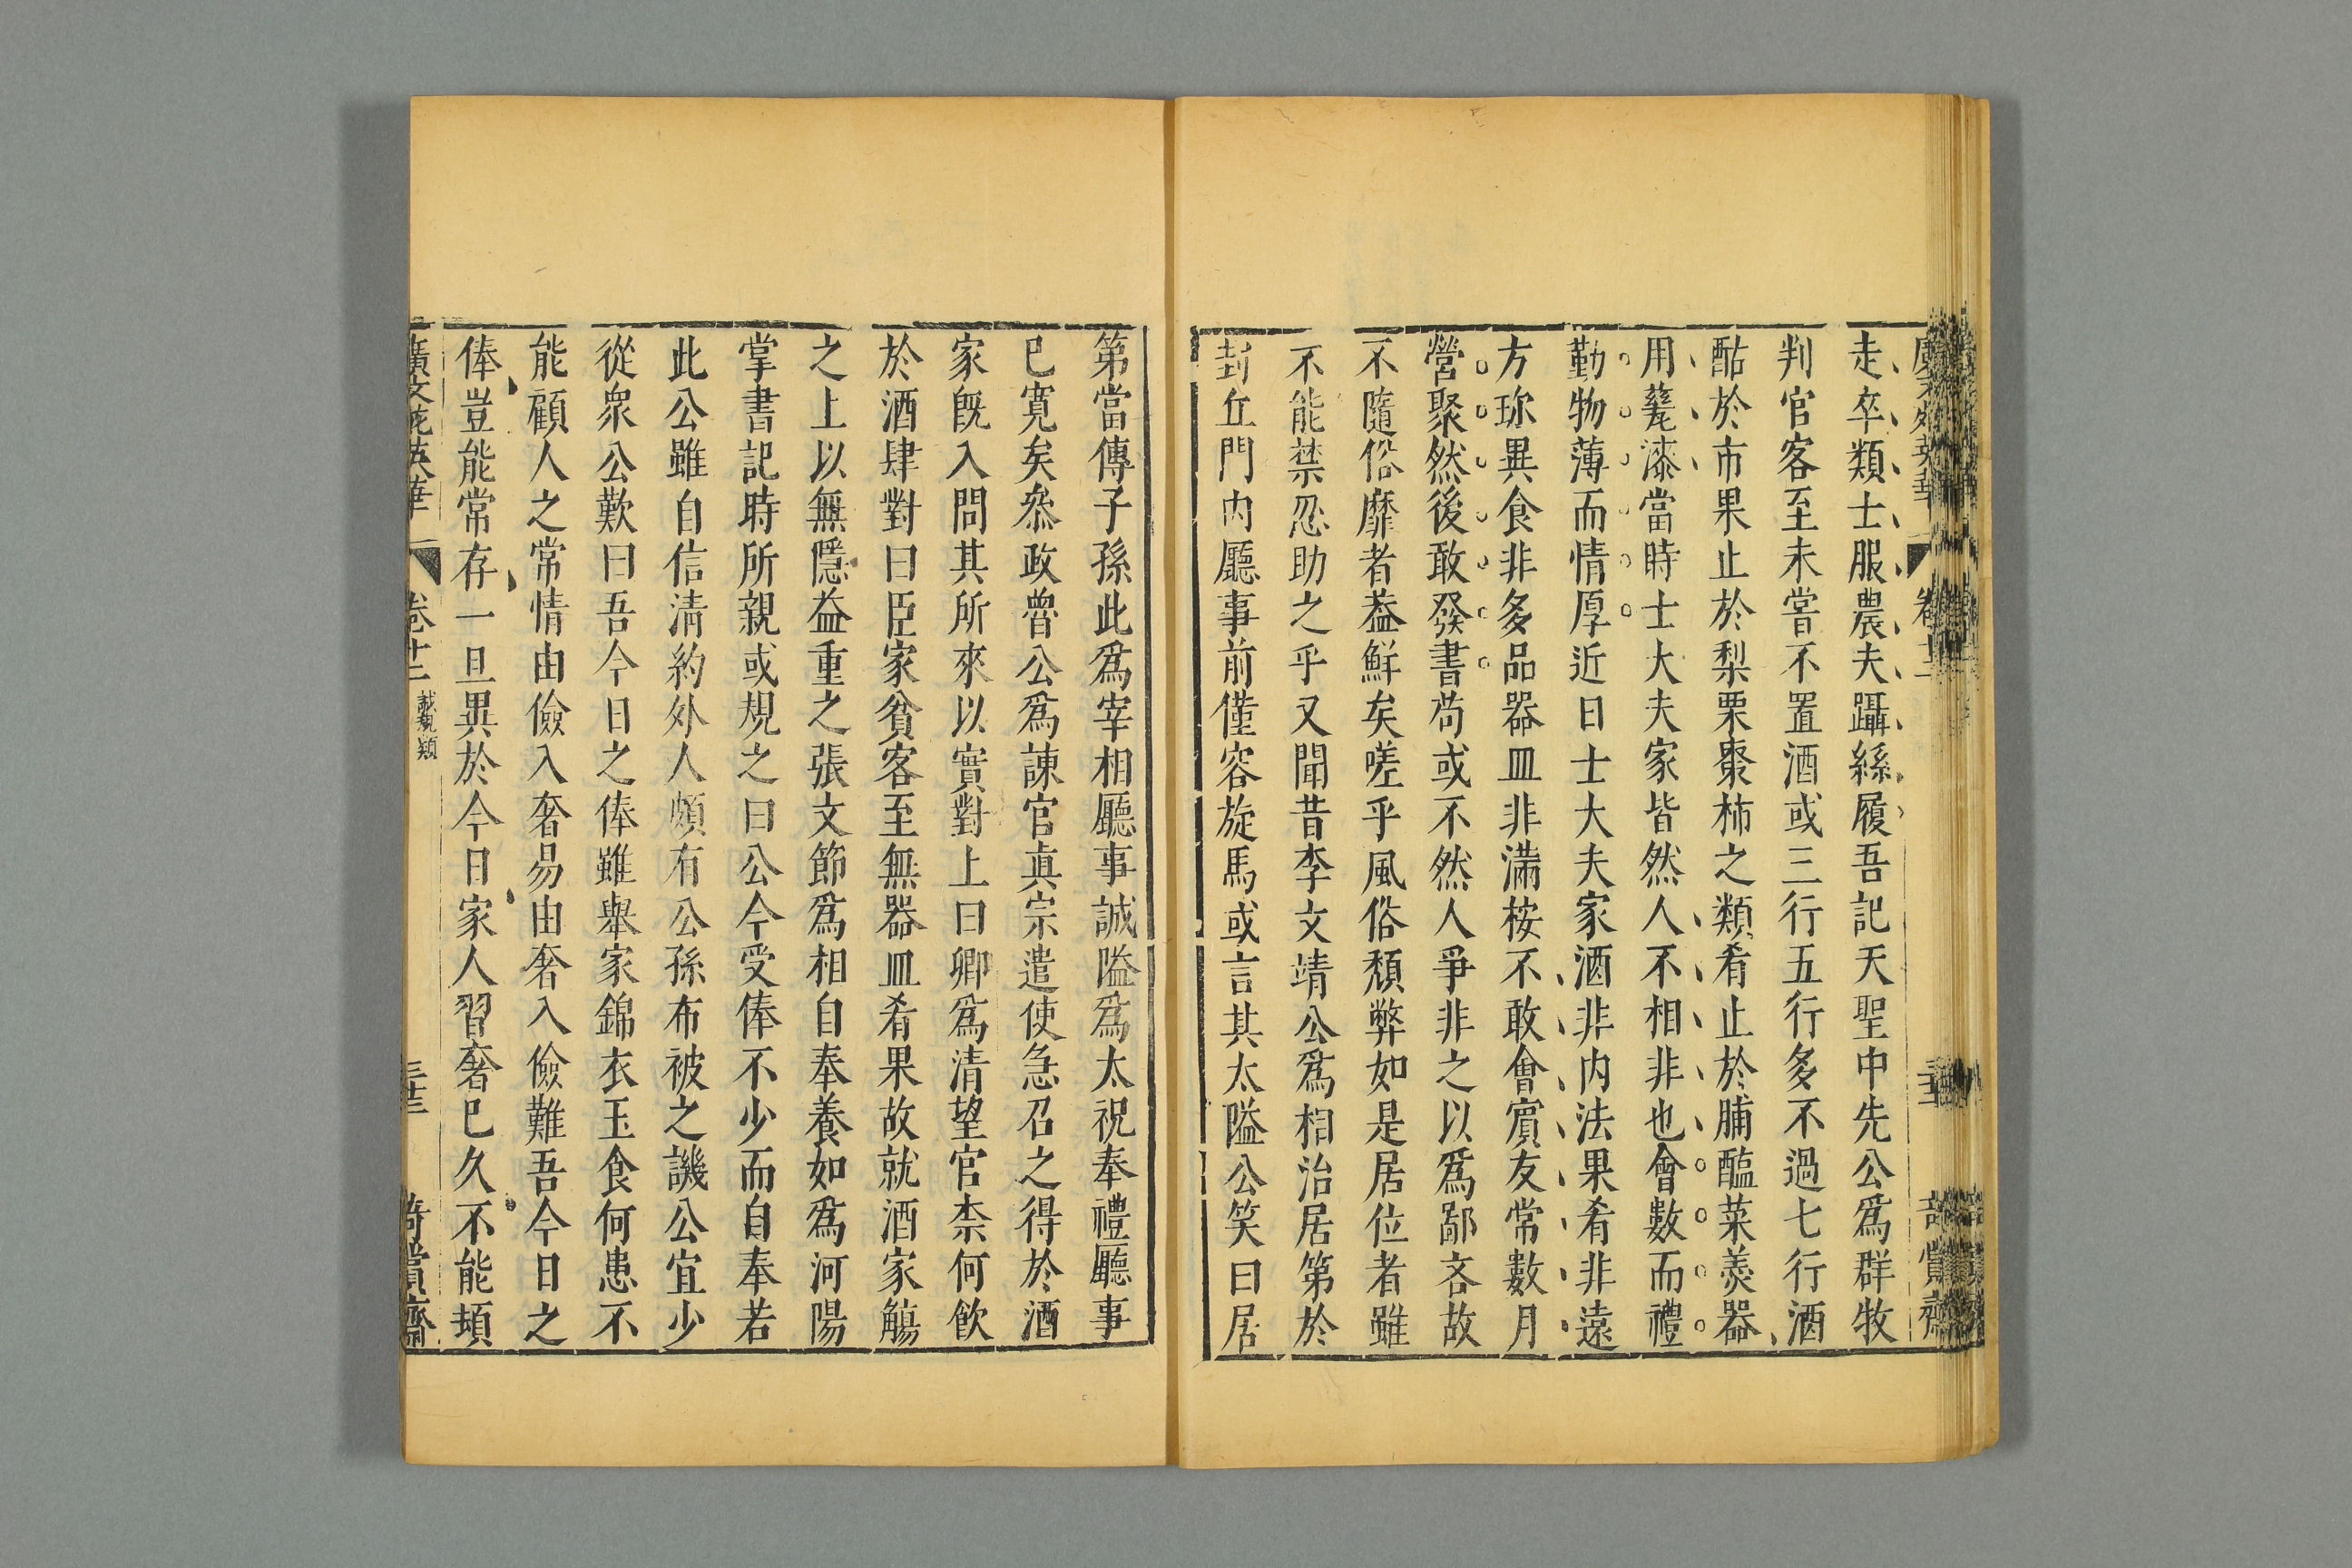 走卒類士服農夫躡絲履吾記天聖中先公爲群牧
判官客至未嘗不置酒或三行五行多不過七行酒
酤於市果止於梨栗棗柿之類肴止於脯醢菜羮器
用甆漆當時士大夫家皆然人不相非也會數而禮
勤物薄而情厚近日士大夫家酒非内法果肴非遠
方珎異食非多品器皿非滿桉不敢會賔友常數月
營聚然後敢發書苟或不然人爭非之以爲鄙吝故
不隨俗靡者葢鮮矣嗟乎風俗頹弊如是居位者雖
不能禁忍助之乎又聞昔李文靖公爲相治居第於
封丘門内廳事前僅容旋馬或言其太隘公笑曰居
第當傳子孫此爲宰相廳事誠隘爲太祝奉禮廳事
已寛矣叅政魯公爲諫官眞宗遣使急召之得於酒
家旣入問其所來以實對上曰卿爲清望官柰何飲
於酒肆對曰臣家貧客至無器皿肴果故就酒家觴
之上以無隱益重之張文節爲相自奉養如爲河陽
掌書記時所親或規之曰公今受俸不少而自奉若
此公雖自信清約外人頗有公孫布被之譏公宜少
從衆公歎曰吾今日之俸雖舉家錦衣玉食何患不
能顧人之常情由儉入奢易由奢入儉難吾今日之
俸豈能常存一旦異於今日家人習奢已久不能頓
廣文苑英華 卷廿二 三十三